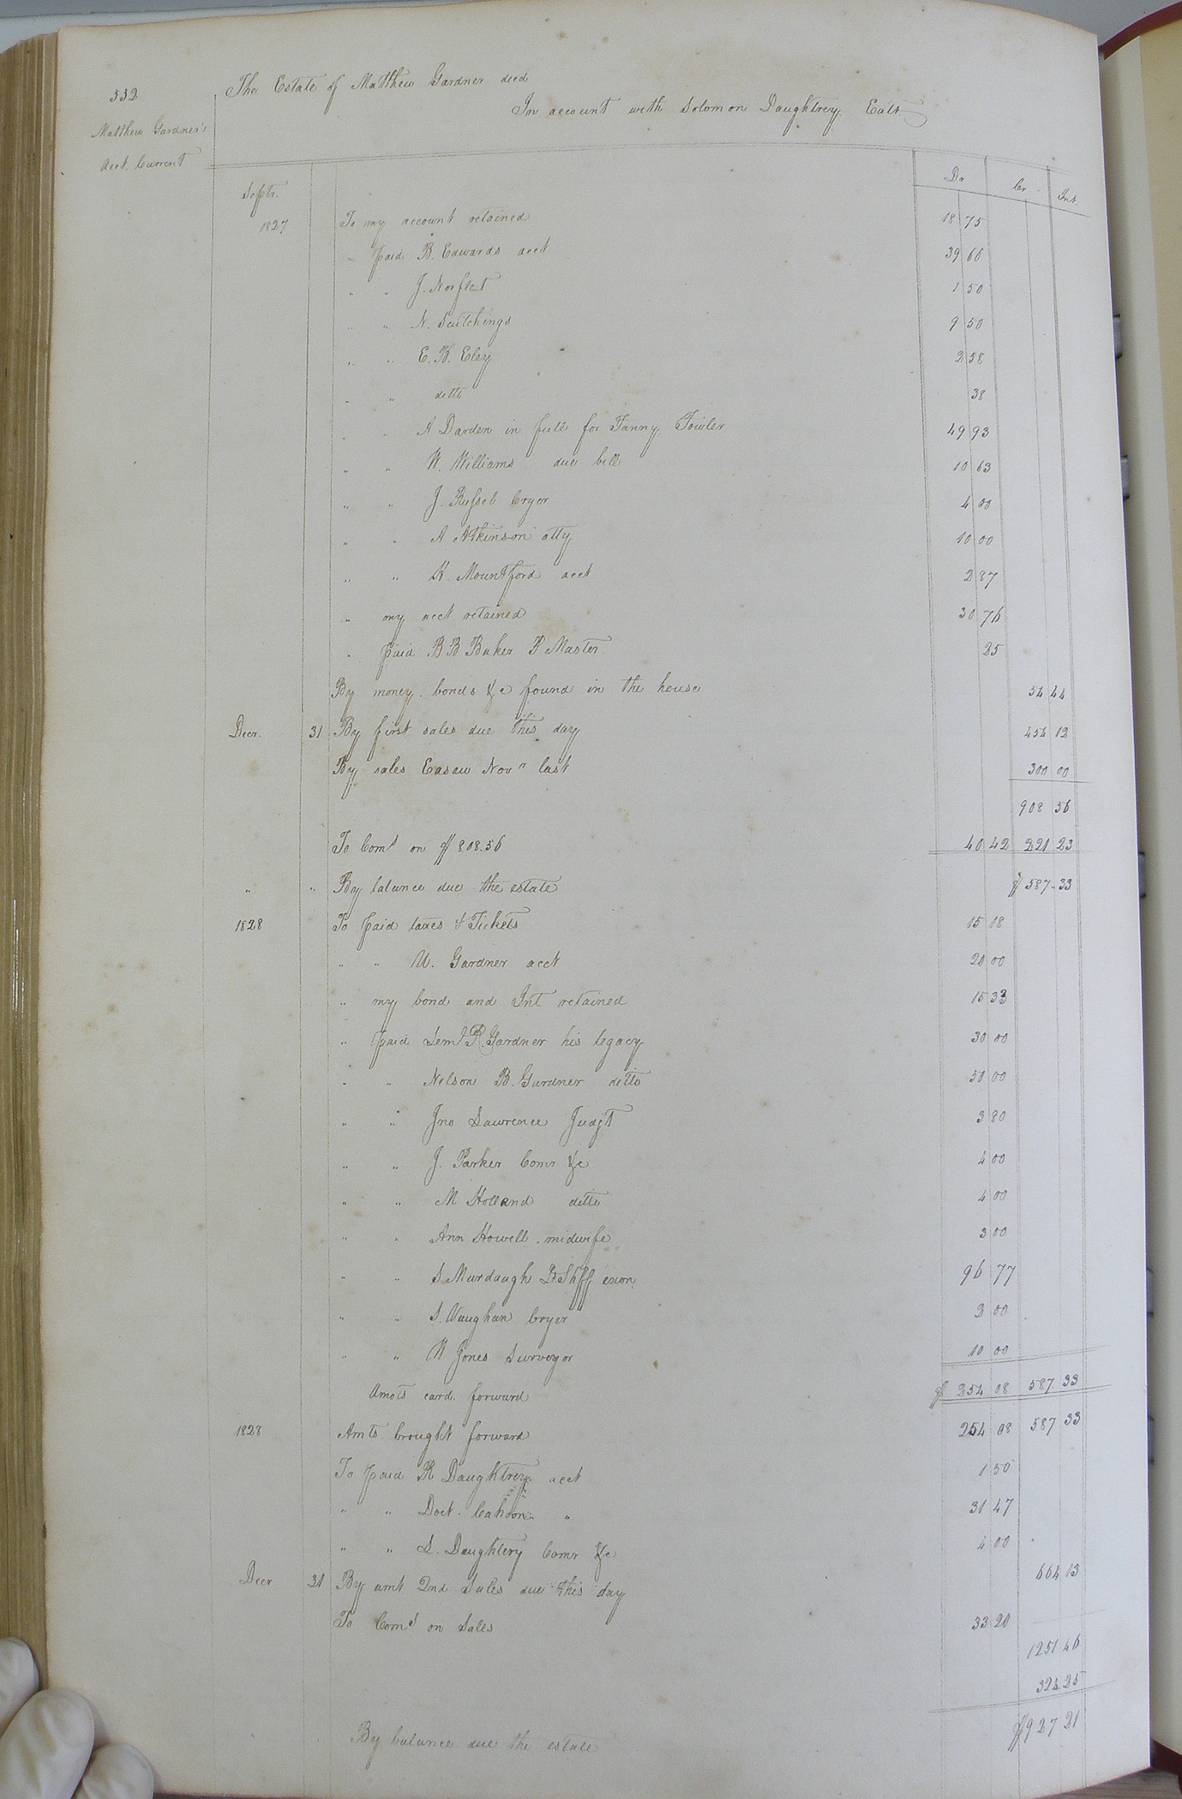 332
The Estate of Matthew Gardner decd
In account with Solomon Daughtrey Exor
Matthew Gardner's
Acct. Current
Dr Cr Int.
Septr.
1827 To my account retained 18 75
" paid B. Edwards acct 39 66
" " J. Norflet 1 50
" " N. Scutchings 9 50
" " E. H. Eley 2 58
" " ditto 38
" " A Darden in full for Fanny Fowler 49 93
" " W. Williams due bill 10 63
" " J. Russel Cryer 4 00
" " A Atkinson atty 10 00
" " K. Mountford acct 2 87
" my acct retained 30 76
" paid B B Baker P Master 25
By money bonds &c found in the house 54 44
Decr. 31 By first sales due this day 454 12
By sales Novr last 300 00
908 56
To Comd on $ 808.56 40 42 221 23
" " By balance due the estate $ 587.33
1828 To paid taxes & Tickets 15 18
" " U. Gardner acct 20 00
" my bond and Int retained 15 33
" paid Jemd R. Gardner his legacy 30 00
" " Nelson B. Gardner ditto 50 00
" " Jno Lawrence Judgt 3 80
" " J. Parker Comr &c 4 00
" " M Holland ditto 4 00
" " Ann Howell midwife 3 00
" " S. Murdaugh D Shff exon 96 77
" " S. Vaughan Cryer 2 00
" " W Jones Surveyor 10 00
Amots card. forward $ 254 08 587 33
1828 Amts brought forward 254 08 587 33
To paid R Daughtrey acct 1 50
" " Doct. Cahoon " 31 47
" " S. Daughtery Comr &c 4 00
Decr 31 By amt 2nd Sales due this day 664 13
To Comd on Sales 33 20
1251 46
324 25
By balance due the estate $ 927 21